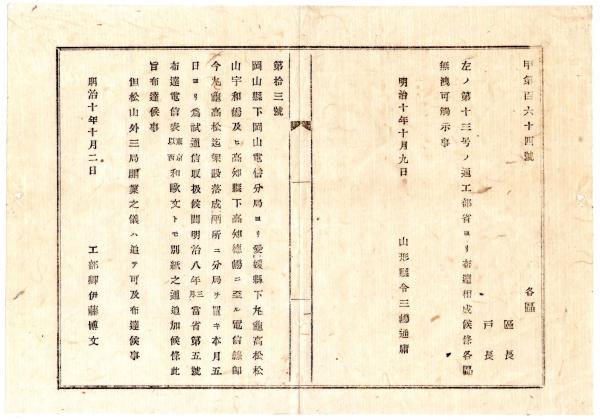 甲第百六十四號
各區
區長
戸長
左ノ第十三号ノ通工部省ヨリ布達相成候條各區
無洩可觸示事
明治十年十月九日
山形縣令三島通庸
第拾三號
岡山縣下岡山電信分局ヨリ愛媛縣下丸龜高松松
山宇和島及ヒ高知縣下高知德島ニ至ル電信線即
今丸龜高松迄架設落成兩所ニ分局ヲ置キ本月五
日ヨリ爲試通信取扱候間明治八年三月當省第五號
布達電信表東京以西和歐文トモ別紙之通追加候條此
旨布達候事
但松山外三局開業之儀ハ追テ可及布達候事
明治十年十月二日
工部卿伊藤博文